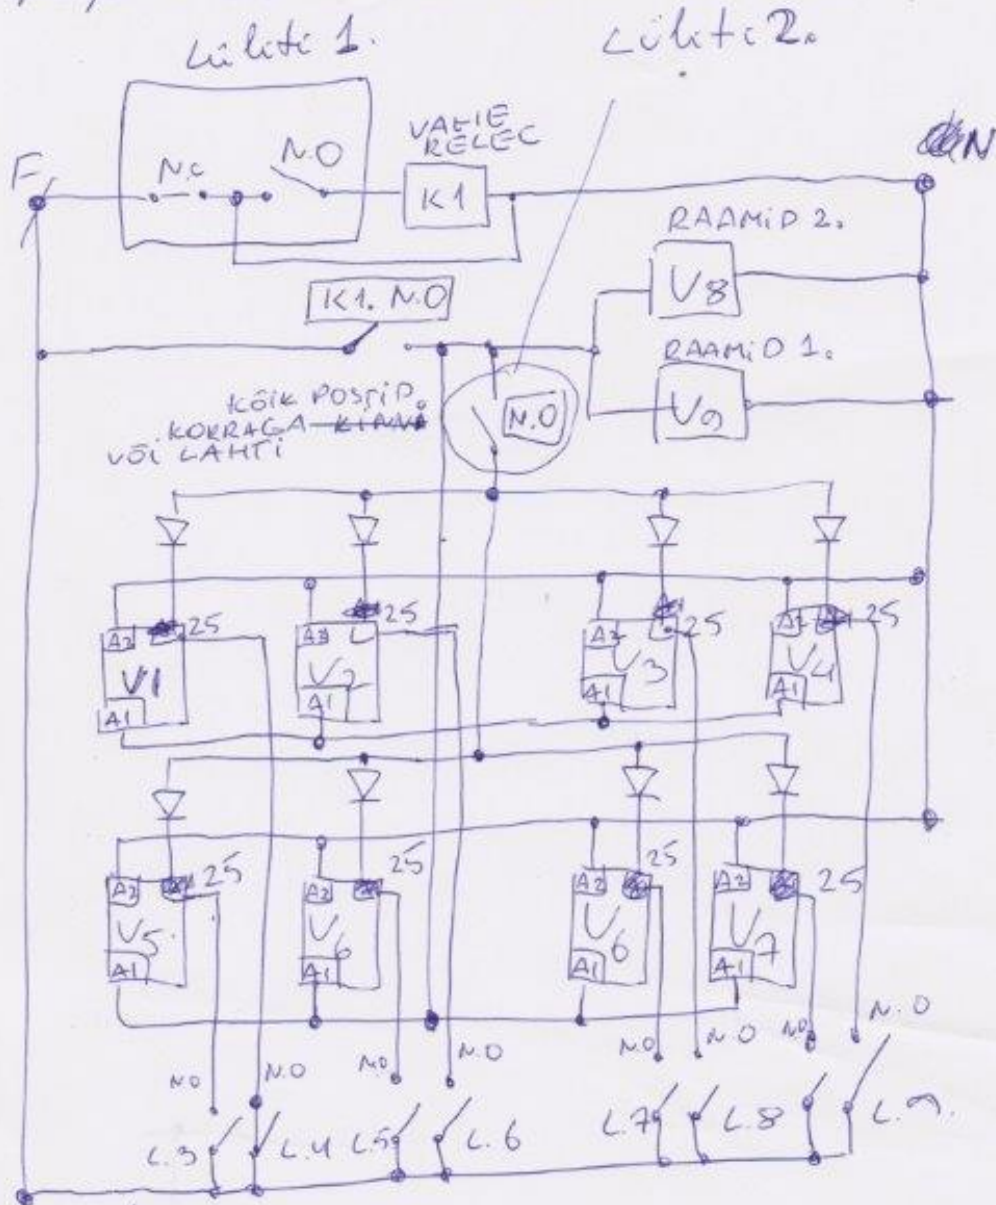 Lüliti 1.
Lüliti 2.
F
N.C
N.O
VAHE
RELEE
K1
N
RAAMiD 2.
V8
K1. N.O
RAAMiD 1.
V9
KÕIK POSTID.
KORRAGA KINNI
VÕI LAHTI
N.O
A2 25
V1
A1
A2 25
V2
A1
A2 25
V3
A1
A2 25
V4
A1
A2 25
V5.
A1
A2 25
V6
A1
A2 25
V6
A1
A2 25
V7
A1
N.O N.O N.O N.O N.O N.O N.O N.O
L.3 L.4 L.5 L.6 L.7 L.8 L.9.